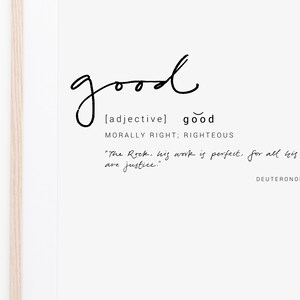 good
[adjective] gŏŏd
MORALLY RIGHT; RIGHTEOUS
"The Rock, his work is perfect, for all his
are justice."
DEUTERONO